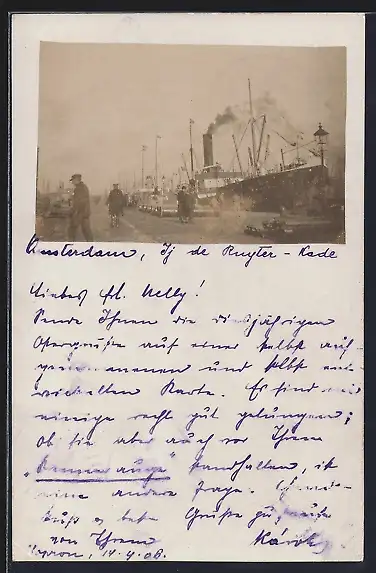 Amsterdam, Ij de Ruyter-Kade
Liebes Frl. Nelly!
Sende Ihnen die diesjährigen
Ostergrüße auf einer selbst auf-
genommenen und selbst ent-
wickelten Karte. Es sind mir
einige recht gut gelungen;
ob sie aber auch vor Ihrem
"Kennerauge" standhalten, ist
eine andere Frage.
Grüße
von Ihrem Károly
14.4.06.